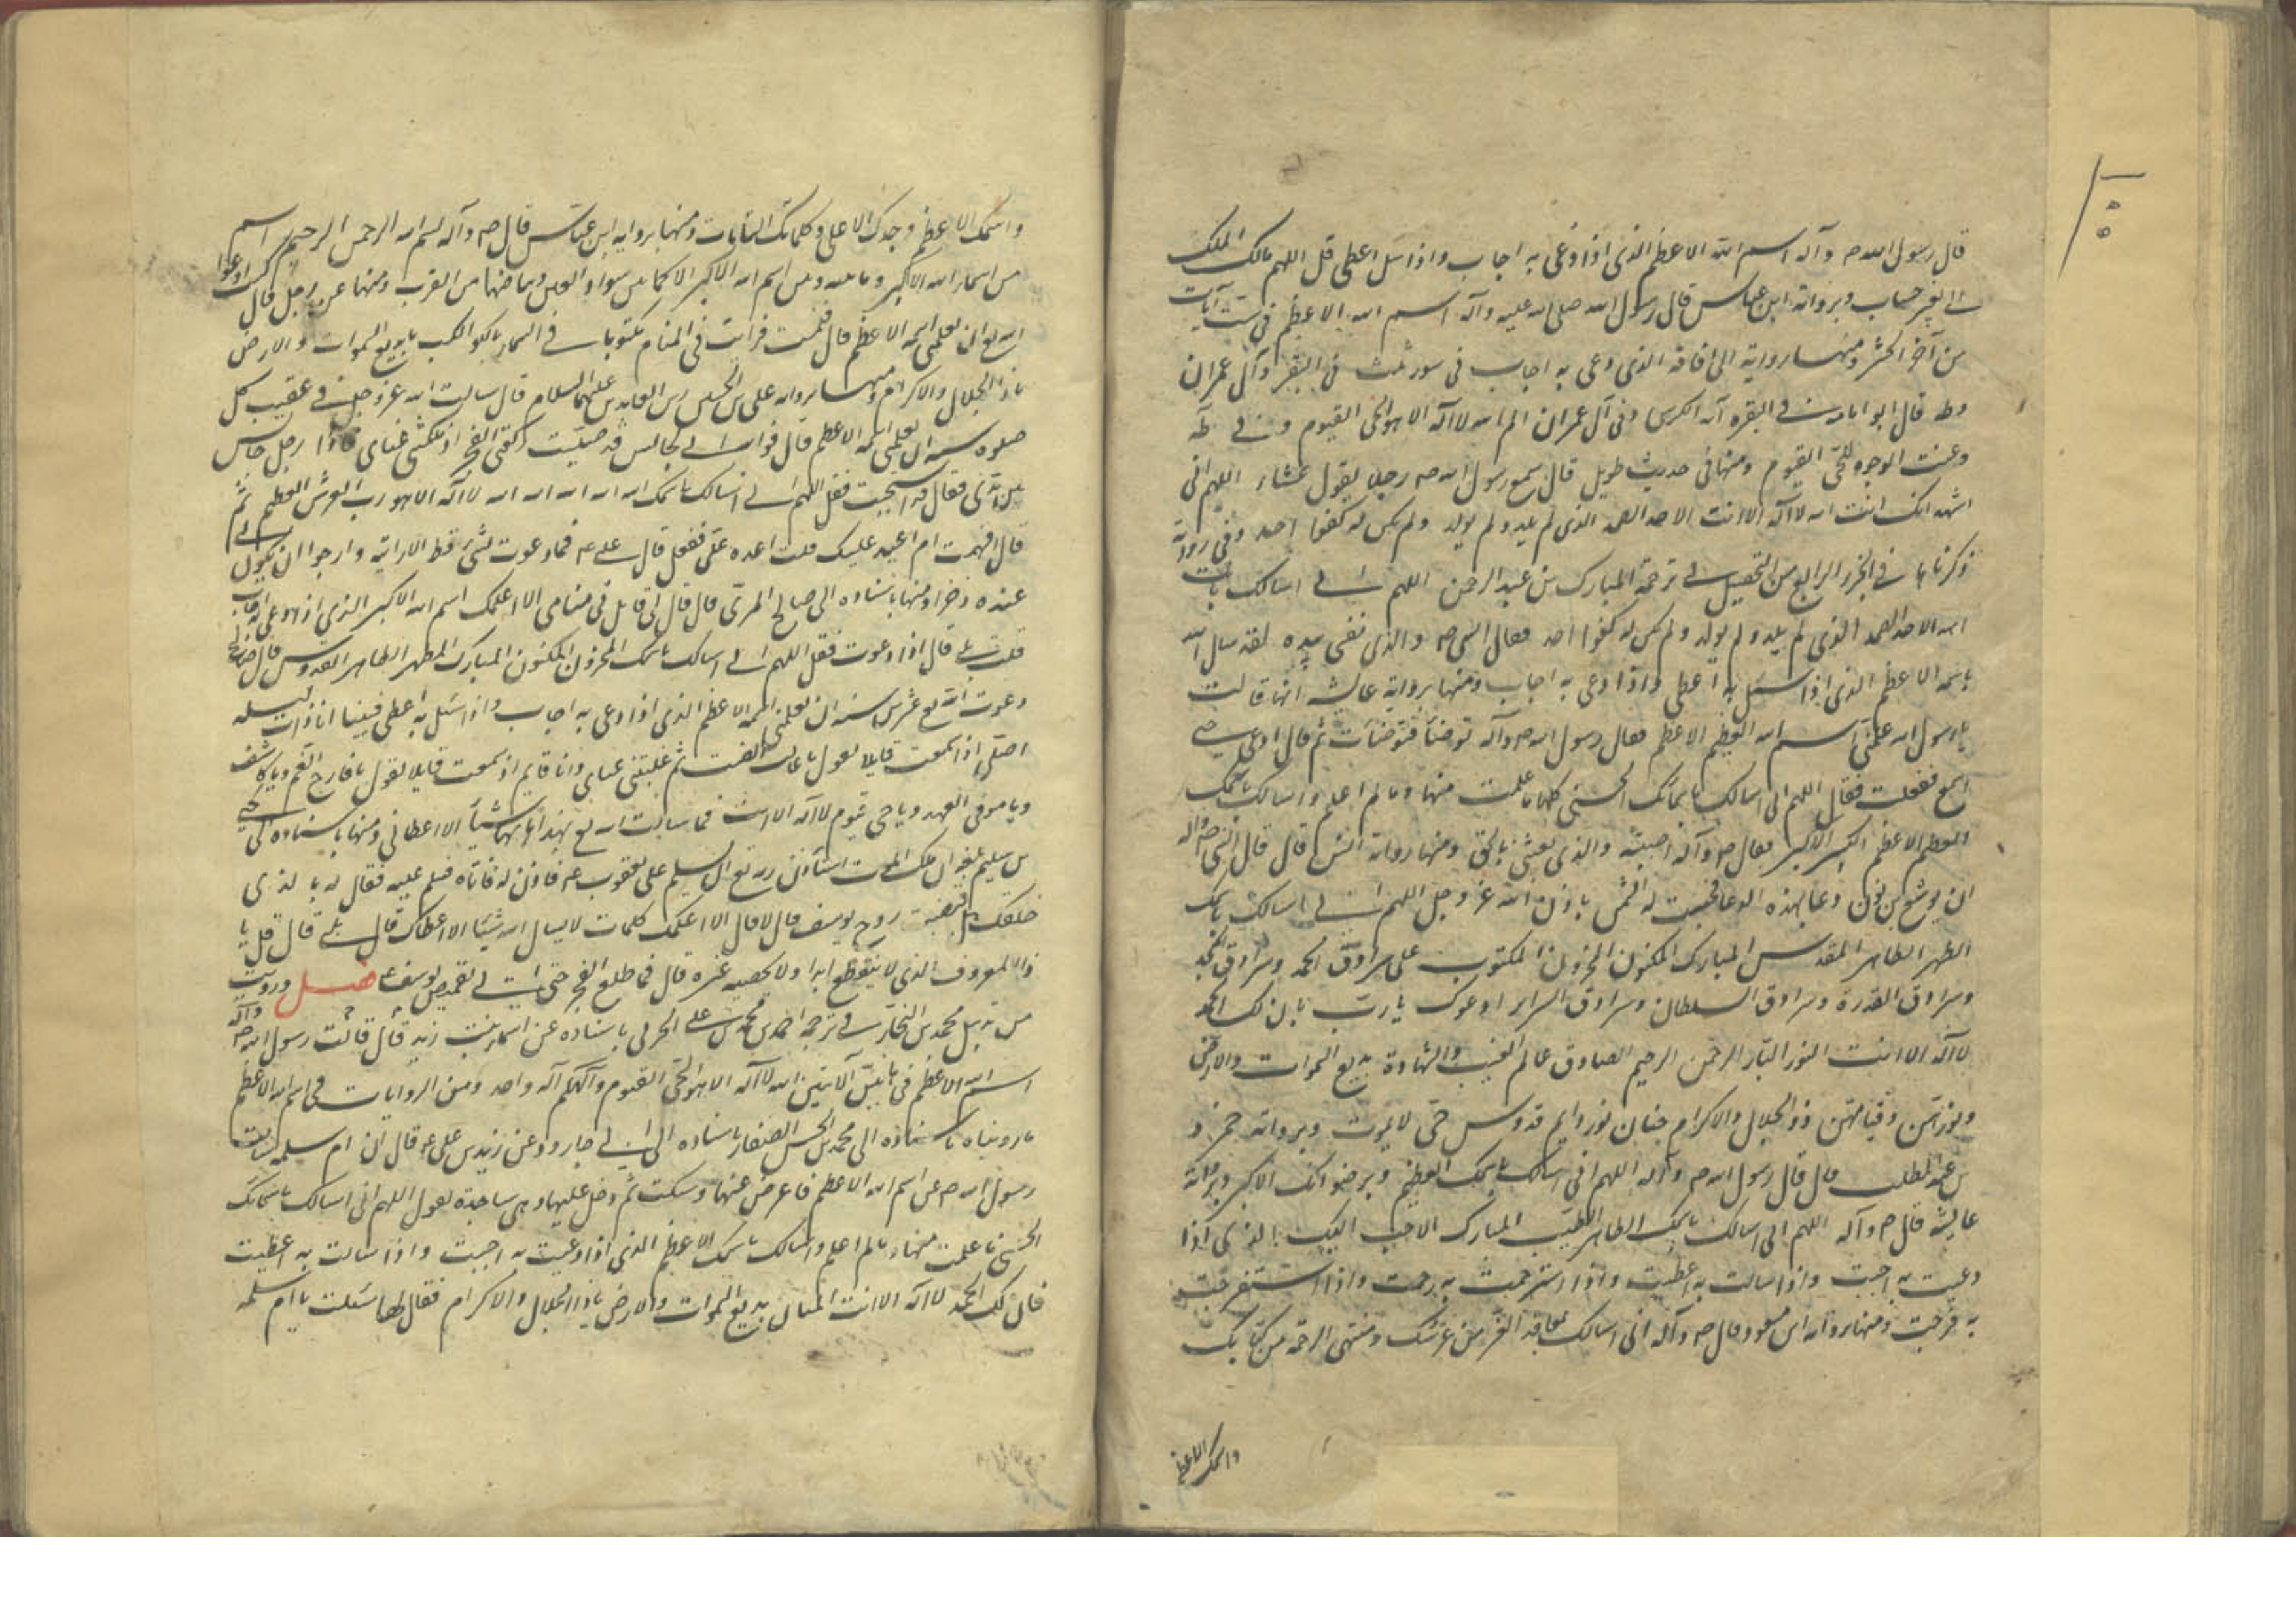 قال رسول الله ص وآله اسم الله الاعظم الذى اذا دعى به اجاب واذا سئل اعطى قل اللهم مالك الملك
الى بغير حساب وبرواية ابن عباس قال رسول الله صلى الله عليه وآله اسم الله الاعظم فى ست آيات
من آخر الحشر ومنها رواية الذى دعى به اجاب فى سور ثلث فى البقرة وآل عمران
وطه قال ابو امامة فى البقره آية الكرسى وفى آل عمران الم الله لا اله الا هو الحى القيوم وفى طه
وعنت الوجوه للحى القيوم ومنها فى حديث طويل قال سمع رسول الله ص رجلا يقول عشاء اللهم انى
اشهد انك انت الله لا اله الا انت الاحد الصمد الذى لم يلد ولم يولد ولم يكن له كفوا احد وفى رواية
ذكرناها فى الجزء الرابع من التحصيل فى ترجمة المبارك بن عبد الرحمن اللهم انى اسالك بانك انت
الله الاحد الصمد الذى لم يلد ولم يولد ولم يكن له كفوا احد فقال النبى ص والذى نفسى بيده لقد سال الله
باسمه الاعظم الذى اذا سئل به اعطى واذا دعى به اجاب ومنها برواية عايشه انها قالت
يا رسول الله علمنى اسم الله العظيم الاعظم فقال رسول الله ص وآله توضئا فتوضئات ثم قال ادعى حتى
اسمع ففعلت فقال اللهم انى اسالك باسمائك الحسنى كلها ما علمت منها وما لم اعلم واسالك باسمك
العظيم الاعظم الكبير الاكبر فقال ص وآله اصبته والذى بعثنى بالحق ومنها رواية انس قال قال النبى ص وآله
ان يوشع بن نون دعا بهذه الدعا فحبست له الشمس باذن الله عز وجل اللهم انى اسالك باسمك
الطهر الطاهر المقدس المبارك المكنون المخزون المكتوب على سرادق الحمد وسرادق المجد
وسرادق القدرة وسرادق السلطان وسرادق السراير ادعوك يا رب بان لك الحمد
لا اله الا انت النور البار الرحمن الرحيم الصادق عالم الغيب والشهادة بديع السموات والارض
ونورهن وقيامهن ذو الجلال والاكرام حنان نور دايم قدوس حى لا يموت وبرواية حمزة
بن عبد المطلب قال قال رسول الله ص وآله اللهم انى اسالك باسمك العظيم وبرضوانك الاكبر وبرواية
عايشة قال ص وآله اللهم انى اسالك باسمك الطاهر الطيب المبارك الاحب اليك الذى اذا
دعيت به اجبت واذا سالت به اعطيت واذا استرحمت به رحمت واذا استفرجت
به فرجت ومنها برواية ابن مسعود قال ص وآله انى اسالك بمعاقد العز من عرشك ومنتهى الرحمة من كتابك
واسمك الاعظم
واسمك الاعظم وجدك الاعلى وكلماتك التامات ومنها برواية ابن عباس قال ص وآله بسم الله الرحمن الرحيم اسم
من اسماء الله الاكبر وما بينه وبين اسم الله الاكبر الا كما بين سواد العين وبياضها من القرب ومنها عن رجل قال كنت ادعوا
الله تع ان يعلمنى اسمه الاعظم قال فنمت فرايت فى المنام مكتوبا فى السماء بالكواكب يا بديع السموات والارض
يا ذا الجلال والاكرام ومنها برواية على بن الحسين زين العابدين عليهما السلام قال سالت الله عز وجل فى عقيب كل
صلوة سنة ان يعلمنى اسمه الاعظم قال فوالله انى لجالس قد صليت ركعتى الفجر اذ ملكتنى عيناى فاذا رجل جالس
بين يدى فقال قد استجيب فقل اللهم انى اسالك باسمك الله الله الله الله الله لا اله الا هو رب العرش العظيم ثم
قال افهمت ام اعيد عليك قلت اعده على ففعل قال على ع فما دعوت بشئ قط الا رايته وارجوا ان يكون لى
عنده ذخرا ومنها باسناده الى صالح المرى قال قال لى قايل فى منامى الا اعلمك اسم الله الاكبر الذى اذا دعى به اجاب
قلت بلى قال اذا دعوت فقل اللهم انى اسالك باسمك المخزون المكنون المبارك المطهر الطاهر القدوس قال صالح
دعوت الله تع عشرين سنة ان يعلمنى اسمه الاعظم الذى اذا دعى به اجاب واذا سئل به اعطى فبينا انا ذات ليله
اصلى اذا سمعت قايلا يقول ثم غلبتنى عيناى وانا قايم اذ سمعت قايلا يقول يا فارج الغم ويا كاشف
ويا موفى العهد ويا حى قيوم لا اله الا انت فما سالت الله تع بهذا شيئا الا اعطانى ومنها باسناده الى يحيى
بن سليم بلغه ان ملك الموت استاذن ربه تع ان يسلم على يعقوب ع فاذن له فاتاه فسلم عليه فقال له بالذى
خلقك هل قبضت روح يوسف قال لا قال الا اعلمك كلمات لا يسال الله شيئا الا اعطاك قال بلى قال قل يا
ذا المعروف الذى لا ينقطع ابدا ولا يحصيه غيره قال فما طلع الفجر حتى اتى بقميص يوسف ع فصل ورويت
من تذييل محمد بن النجار فى ترجمة احمد بن محمد بن على الحربى باسناده عن اسماء بنت زيد قالت قال رسول الله ص وآله
اسم الله الاعظم فى هاتين الآيتين الله لا اله الا هو الحى القيوم والهكم اله واحد ومن الروايات فى اسم الله الاعظم
ما رويناه باسناده الى محمد بن الحسن الصفار باسناده الى ابى جارود عن زيد بن على ع قال ان ام سلمه سالت
رسول الله ص عن اسم الله الاعظم فاعرض عنها وسكت ثم دخل عليها وهى ساجدة تقول اللهم انى اسالك باسمائك
الحسنى ما علمت منها وما لم اعلم واسالك باسمك الاعظم الذى اذا دعيت به اجبت واذا سالت به اعطيت
فان لك الحمد لا اله الا انت المنان بديع السموات والارض يا ذا الجلال والاكرام فقال لها سئلت يا ام سلمه